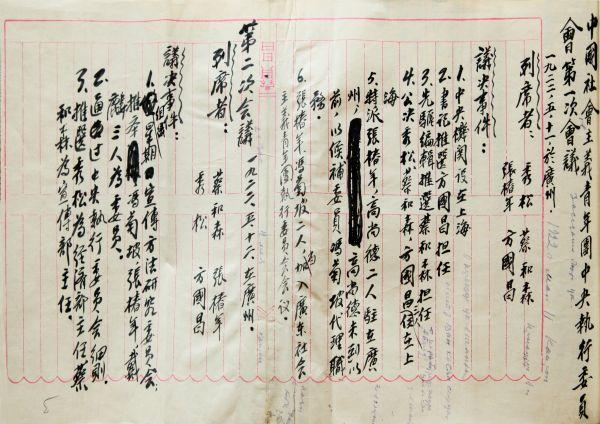 中國社會主義青年團中央執行委員
會第一次會議
一九二二、五、十一於廣州。
列席者：秀松 蔡和森
張椿年 方國昌
議決事件：
1.中央機関設在上海
2.書記推選方國昌担任
3.先驅編輯推選蔡和森担任
4.公決秀松、蔡和森、方國昌住在上
海
5.特派張椿年、高尚德二人駐在廣
州，高尚德未到以
前，以候補委員馮菊坡代理職
務。
6.張椿年馮菊坡二人加入廣東社會
主義青年團執行委員會會議。
第二次會議 一九二二、五、十六在廣州。
列席者：蔡和森 張椿年
秀松 方國昌
議決事件：
1.星期日宣傳方法研究委員會，
推舉馮菊坡張椿年戴
麟三人為委員。
2.通過中央執行委員會細則。
3.推選秀松為經济部主任蔡
和森為宣傳部主任。